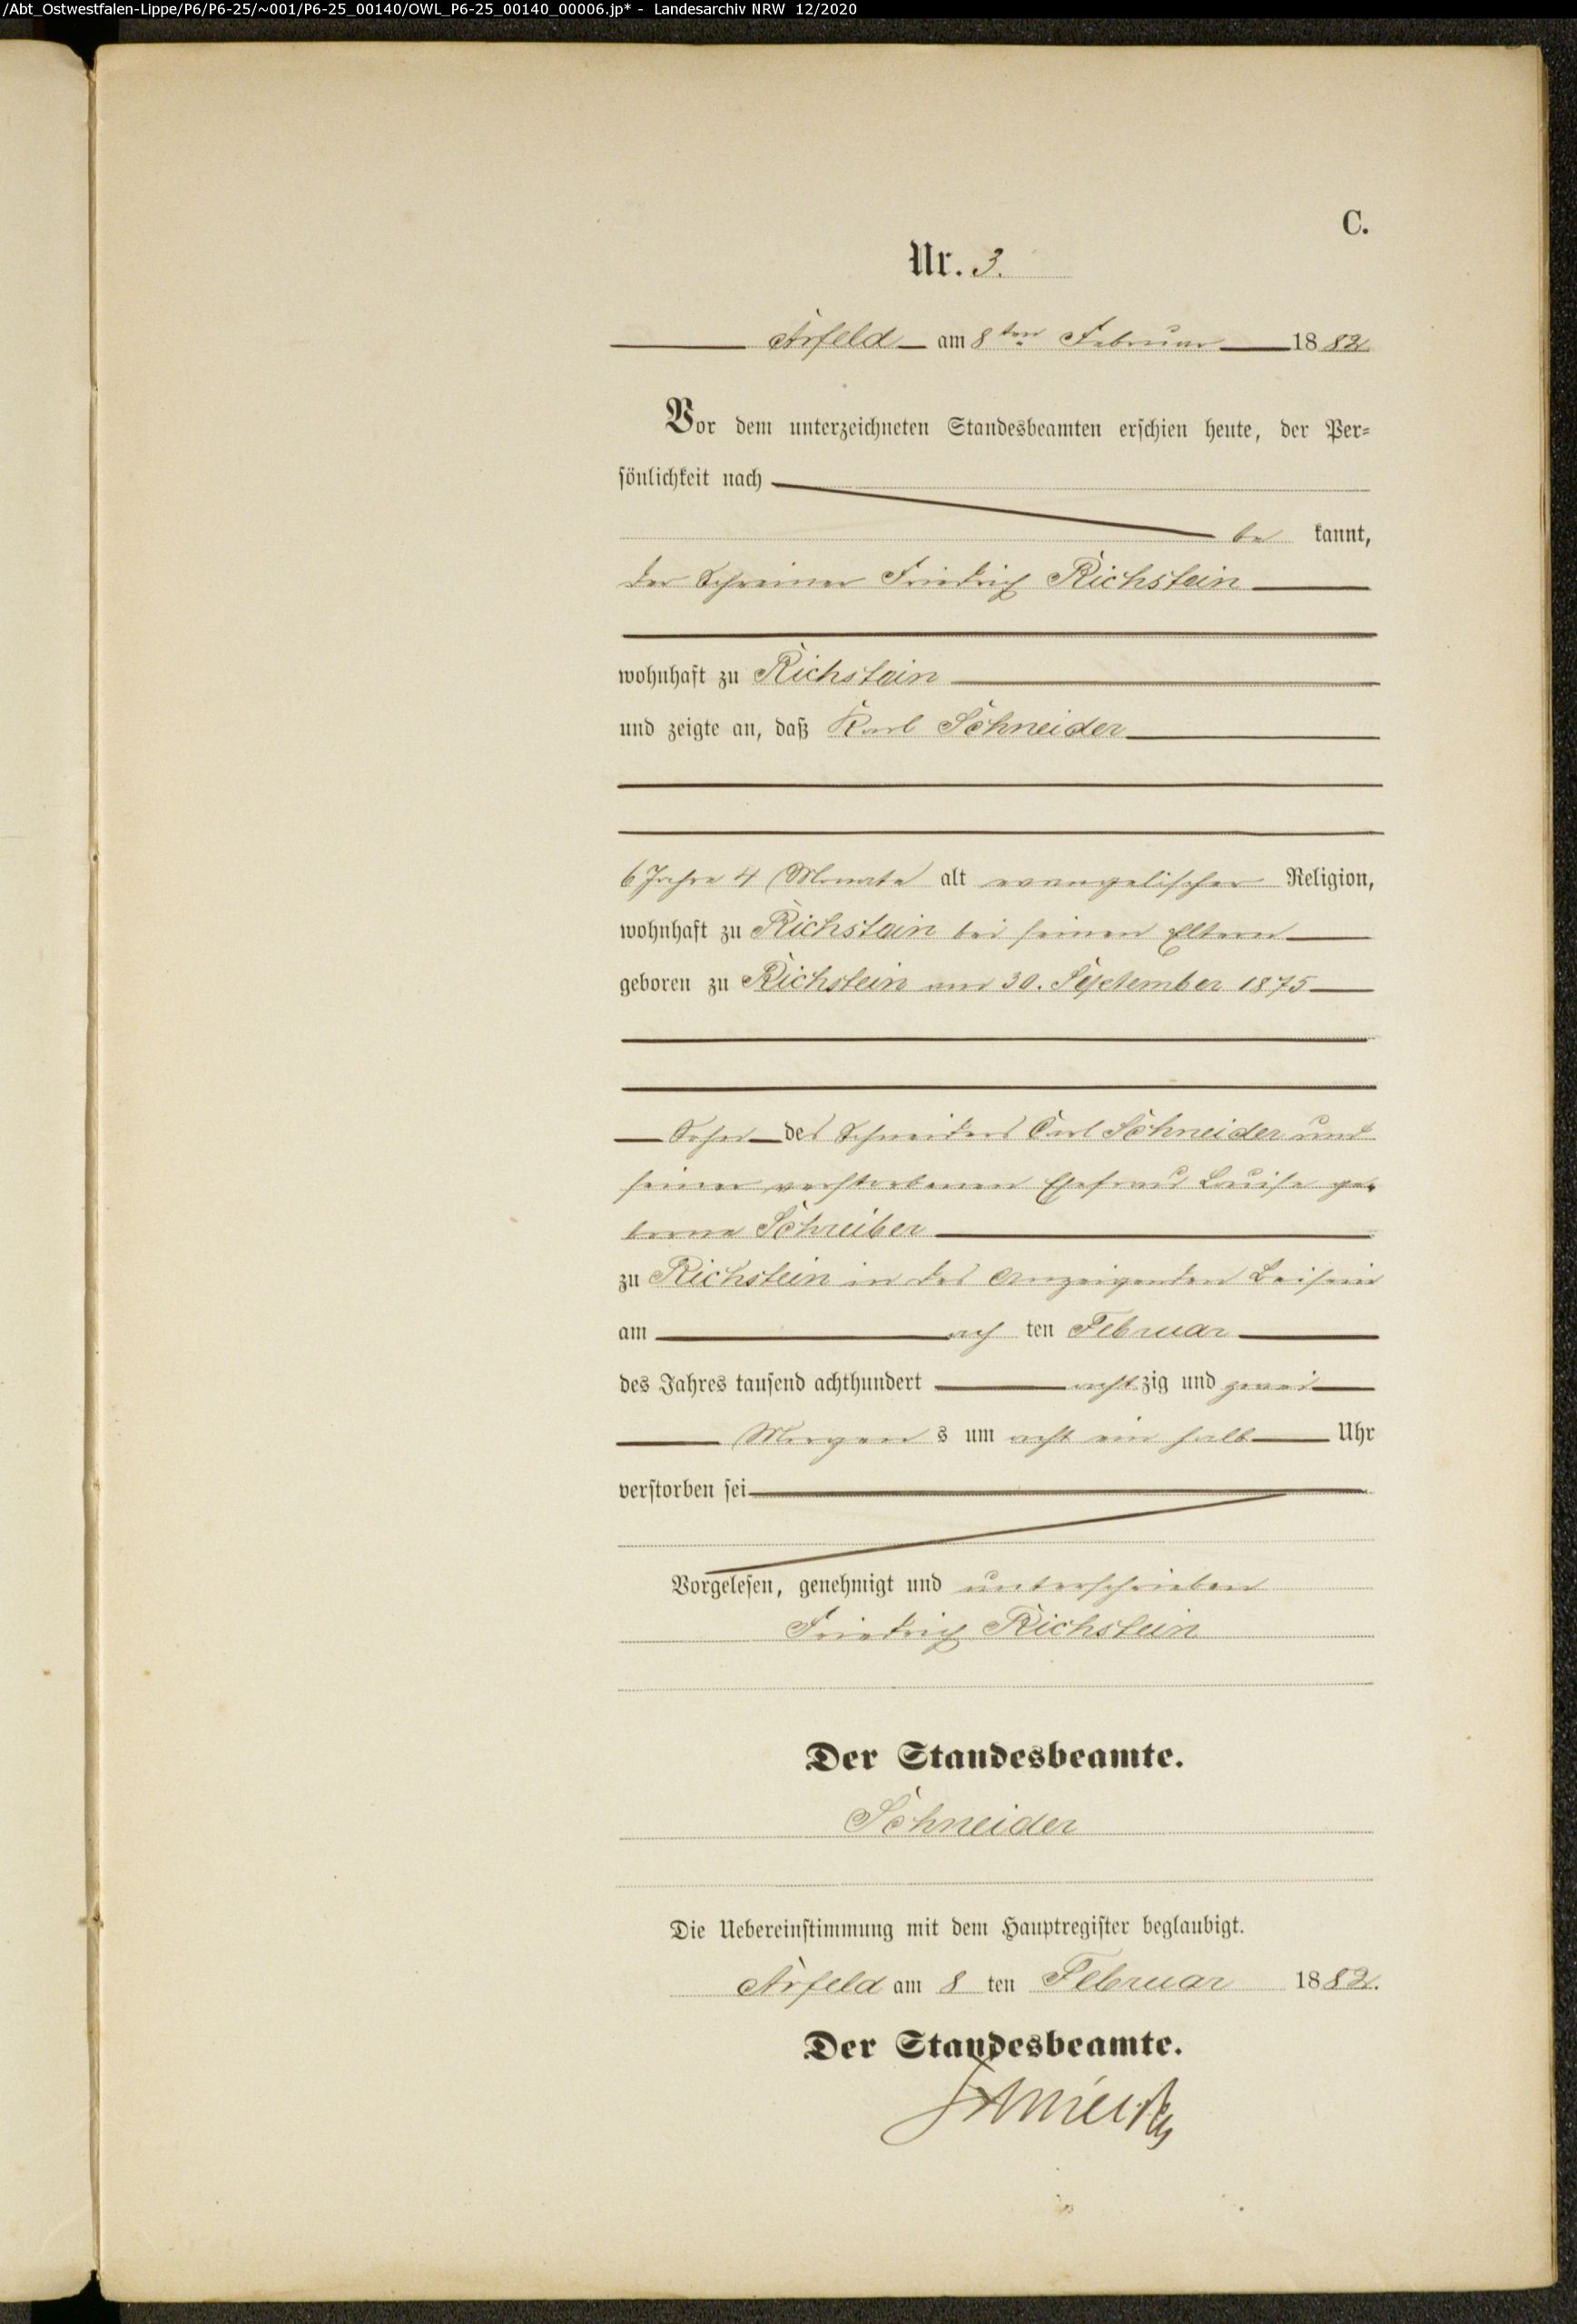 /Abt_Ostwestfalen-Lippe/P6/P6-25/~001/P6-25_00140/OWL_P6-25_00140_00006.jp* - Landesarchiv NRW 12/2020
C.
Nr. 3.
Arfeld am 8ten Februar 1882
Vor dem unterzeichneten Standesbeamten erschien heute, der Per-
sönlichkeit nach
be kannt,
der Schreiner Friedrich Richstein
wohnhaft zu Richstein
und zeigte an, daß Karl Schneider
6 Jahre 4 Monate alt evangelischer Religion,
wohnhaft zu Richstein bei seinen Eltern
geboren zu Richstein am 30. September 1875
Sohn des Schneiders Carl Schneider und
seiner verstorbenen Ehefrau Louise ge-
borne Schreiber
zu Richstein in des Anzeigenden Beisein
am ach ten Februar
des Jahres tausend achthundert acht zig und zwei
Morgen s um acht ein halb Uhr
verstorben sei
Vorgelesen, genehmigt und unterschrieben
Friedrich Richstein
Der Standesbeamte.
Schneider
Die Uebereinstimmung mit dem Hauptregister beglaubigt.
Arfeld am 8 ten Februar 1882.
Der Standesbeamte.
Schneider